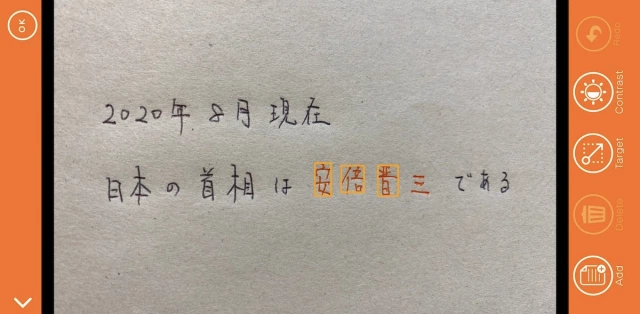 OK
2020年 8月 現在
日本の首相は安倍晋三である
Redo
Contrast
Target
Delete
Add